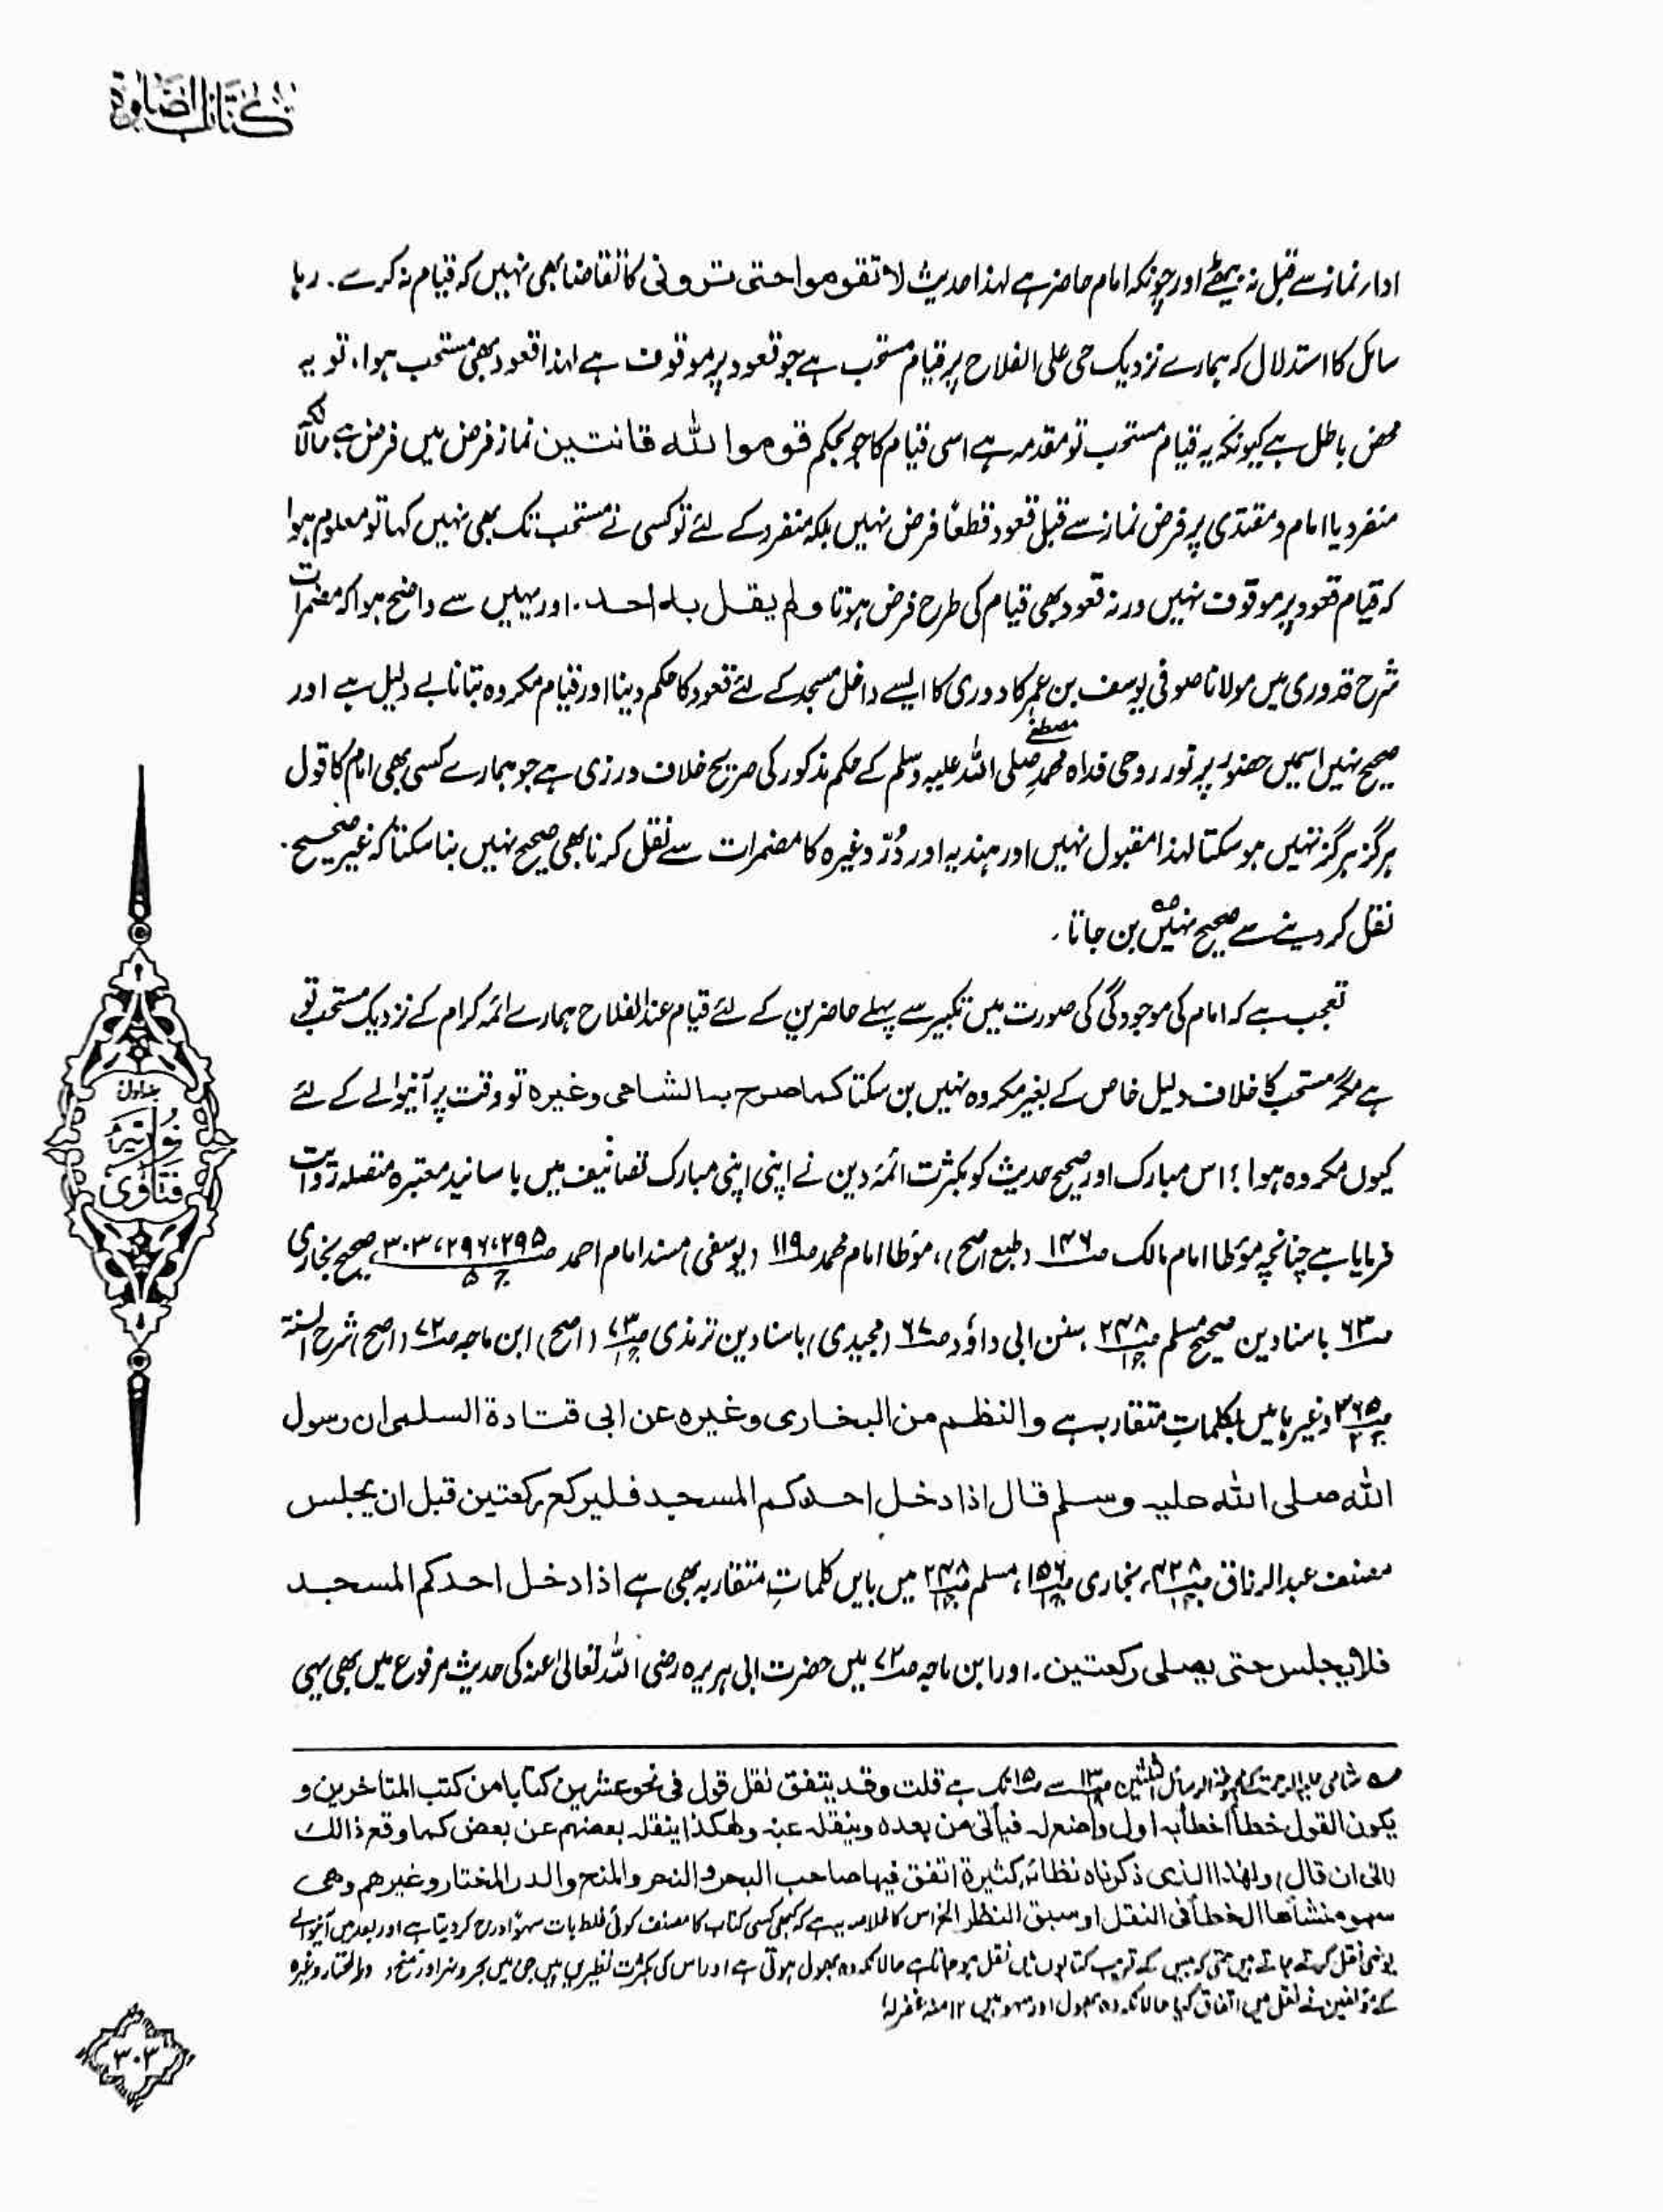 کتاب الصلوۃ
ادار نماز سے قبل نہ بیٹھے اور چونکہ امام حاضر ہے لہذا حدیث لا تقوموا حتی ترونی کا تقاضا بھی نہیں کہ قیام نہ کرے. رہا
سائل کا استدلال کہ ہمارے نزدیک حی علی الفلاح پر قیام مستحب ہے جو قعود پر موقوف ہے لہذا قعود بھی مستحب ہوا، تو یہ
محض باطل ہے کیونکہ یہ قیام مستحب تو مقدمہ ہے اسی قیام کا جو بحکم قوموا للہ قانتین نماز فرض میں فرض ہے حالانکہ
منفرد یا امام و مقتدی پر فرض نماز سے قبل قعود قطعاً فرض نہیں بلکہ منفرد کے لئے تو کسی نے مستحب تک بھی نہیں کہا تو معلوم ہوا
کہ قیام قعود پر موقوف نہیں ورنہ قعود بھی قیام کی طرح فرض ہوتا ولم یقل بہ احد. اور یہیں سے واضح ہوا کہ مضمرات
شرح قدوری میں مولانا صوفی یوسف بن عمر کادوری کا ایسے داخل مسجد کے لئے قعود کا حکم دینا اور قیام مکروہ بتانا بے دلیل ہے اور
صحیح نہیں اسمیں حضور پر نور روحی فداہ محمد مصطفےٰ صلی اللہ علیہ وسلم کے حکم مذکور کی صریح خلاف ورزی ہے جو ہمارے کسی بھی امام کا قول
ہرگز ہرگز نہیں ہو سکتا لہذا مقبول نہیں اور ہندیہ اور دُرّ وغیرہ کا مضمرات سے نقل کرنا بھی صحیح نہیں بنا سکتا کہ غیر صحیح.
نقل کر دینے سے صحیح نہیں بن جاتا.
تعجب ہے کہ امام کی موجودگی کی صورت میں تکبیر سے پہلے حاضرین کے لئے قیام عند الفلاح ہمارے ائمہ کرام کے نزدیک مستحب تو
ہے مگر مستحب کا خلاف دلیل خاص کے بغیر مکروہ نہیں بن سکتا کما صرح بہ الشامی وغیرہ تو وقت پر آنیوالے کے لئے
کیوں مکروہ ہوا؟ اس مبارک اور صحیح حدیث کو بکثرت ائمہ دین نے اپنی اپنی مبارک تصانیف میں با سانید معتبرہ متصلہ روایت
فرمایا ہے چنانچہ مؤطا امام مالک صـ ۱۴۶ (طبع اصح)، مؤطا امام محمد صـ ۱۱۹ (یوسفی) مسند امام احمد صـ ۲۹۵،۲۹۶،۳۰۳ جـ ۵، صحیح بخاری
صـ ۶۳ باسنادین صحیح مسلم صـ ۲۴۸ جـ ۱، سنن ابی داؤد صـ ۶۷ (مجیدی) باسنادین ترمذی صـ ۷۳ جـ ۱ (اصح) ابن ماجہ صـ ۷۲ (اصح) شرح السنۃ
صـ ۳۶۵ جـ ۲ وغیرہا میں بکلمات متقاربہ ہے والنظم من البخاری وغیرہ عن ابی قتادة السلمی ان رسول
اللہ صلی اللہ علیہ وسلم قال اذا دخل احدکم المسجد فلیرکع رکعتین قبل ان یجلس
مصنف عبدالرزاق صـ ۴۲۸ جـ ۱، بخاری صـ ۱۵۶ جـ ۱، مسلم صـ ۲۴۸ جـ ۱ میں بایں کلماتِ متقاربہ بھی ہے اذا دخل احدکم المسجد
فلا یجلس حتی یصلی رکعتین. اور ابن ماجہ صـ ۷۲ میں حضرت ابی ہریرہ رضی اللہ تعالیٰ عنہ کی حدیث مرفوع میں بھی یہی
جلد اول
فتاوی نوریہ
صـ ۱۳ سے صـ ۱۵ تک ہے قلت وقد یتفق نقل قول فی نحو عشرین کتابا من کتب المتاخرین و
یکون القول خطأ اخطأ بہ اول واضع لہ فیأتی من بعدہ وینقلہ عنہ وہکذا ینقلہ بعضہم عن بعض کما وقع ذالک
(الی ان قال) ولہذا الذی ذکرناہ نظائر کثیرة اتفق فیہا صاحب البحر والنہر والمنح والدر المختار وغیرہم وھی
سہو منشأھا الخطأ فی النقل او سبق النظر الخ اس کا خلاصہ یہ ہے کہ کبھی کسی کتاب کا مصنف کوئی غلط بات سہواً درج کر دیتا ہے اور بعد میں آنیوالے
یونہی نقل کرتے جاتے ہیں حتی کہ بیس کے قریب کتابوں میں نقل ہو جاتا ہے حالانکہ وہ بھول ہوتی ہے اور اس کی بکثرت نظیریں ہیں جن میں بحر و نہر اور منح و در المختار وغیرہ
کے مؤلفین نے نقل میں اتفاق کیا حالانکہ وہ بھول اور سہو ہیں ۱۲ منہ غفرلہ
۳۰۳